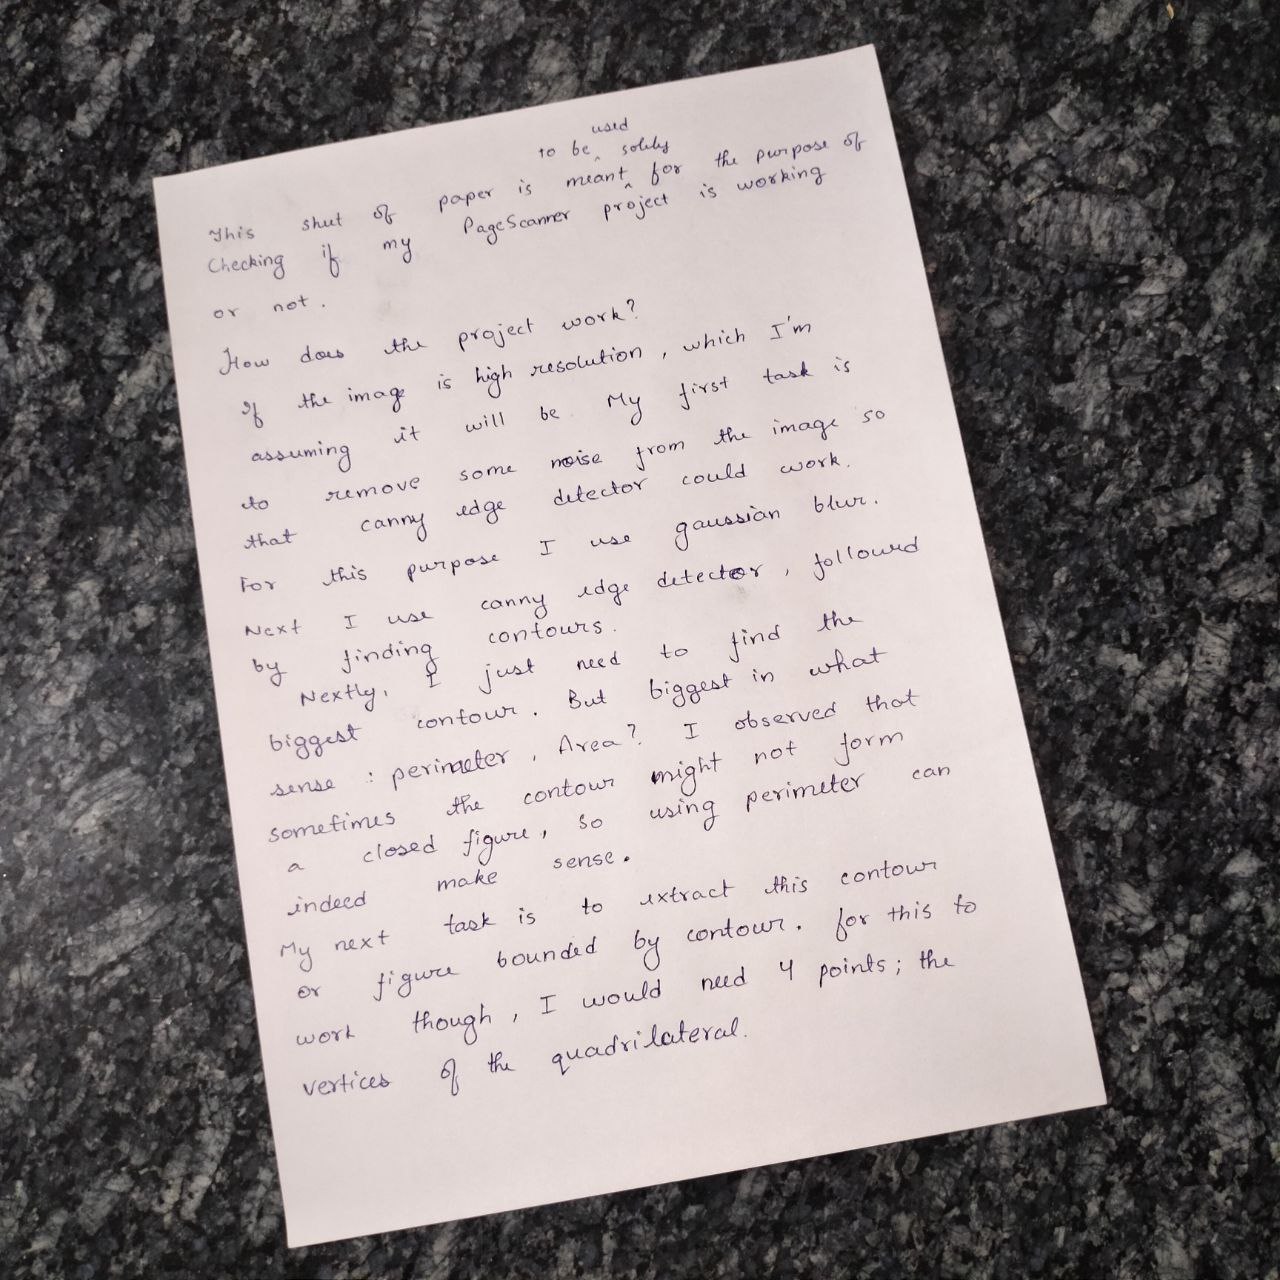 used
to be ‸ solely
This sheet of paper is meant ‸ for the purpose of
Checking if my PageScanner project is working
or not.
How does the project work?
If the image is high resolution, which I'm
assuming it will be. My first task is
to remove some noise from the image so
that canny edge detector could work.
For this purpose I use gaussian blur.
Next I use canny edge detector, followed
by finding contours.
Nextly, I just need to find the
biggest contour. But biggest in what
sense : perimeter, Area? I observed that
sometimes the contour might not form
a closed figure, so using perimeter can
indeed make sense.
My next task is to extract this contour
or figure bounded by contour. for this to
work though, I would need 4 points; the
vertices of the quadrilateral.